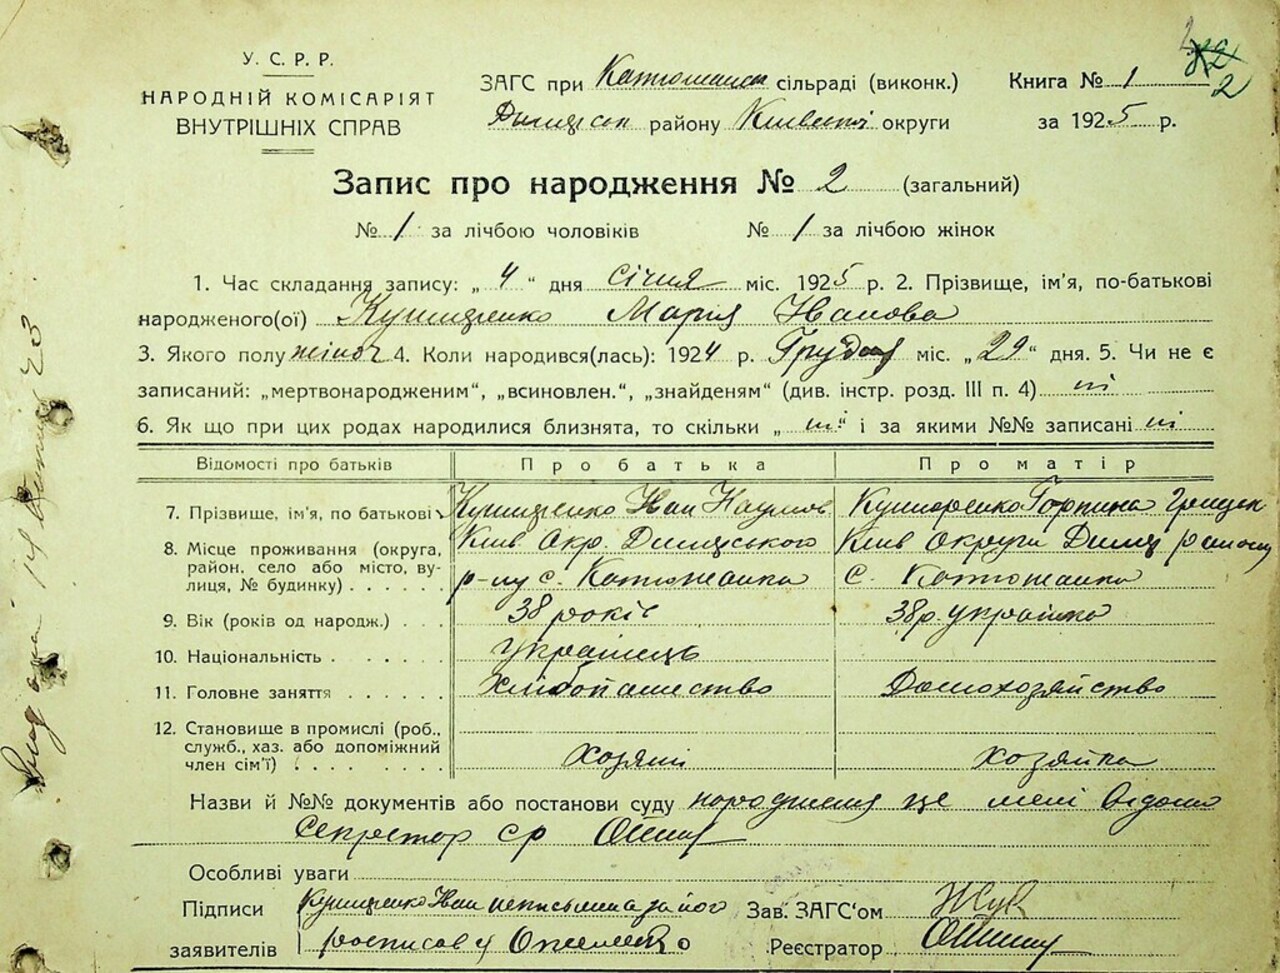 У. С. Р. Р.
НАРОДНІЙ КОМІСАРІЯТ
ВНУТРІШНІХ СПРАВ
ЗАГС при сільраді (виконк.)
району округи
Книга № 1
за 1925 р.
2
Запис про народження № 2 (загальний)
№ 1 за лічбою чоловіків № 1 за лічбою жінок
1. Час складання запису: „ 4 “ дня січня міс. 1925 р. 2. Прізвище, ім'я, по-батькові
народженого(ої) Мария Иванова
3. Якого полу жіноч 4. Коли народився(лась): 1924 р. Грудня міс. „ 29 “ дня. 5. Чи не є
записаний: „мертвонародженим“, „всиновлен.“, „знайденям“ (див. інстр. розд. III п. 4) ні
6. Як що при цих родах народилися близнята, то скільки „ ні “ і за якими №№ записані ні
Відомості про батьків Про батька Про матір
7. Прізвище, ім'я, по батькові Иван Наумов Горпина
8. Місце проживання (округа, Київ Окр. Димерського Київ Округи Димер району
район, село або місто, ву-
лиця, № будинку) р-ну с. Катюжанка с. Катюжанка
9. Вік (років од народж.) 38 років 38 р. українка
10. Національність Українець
11. Головне заняття Хлібопашество Домохозяйство
12. Становище в промислі (роб.,
служб., хаз. або допоміжний
член сім'ї) хозяїн хозяйка
Назви й №№ документів або постанови суду народження це мені відомо
Секретар ср
Особливі уваги
Підписи Иван неписьмена за його Зав. ЗАГС'ом Жук
заявителів росписався Реєстратор